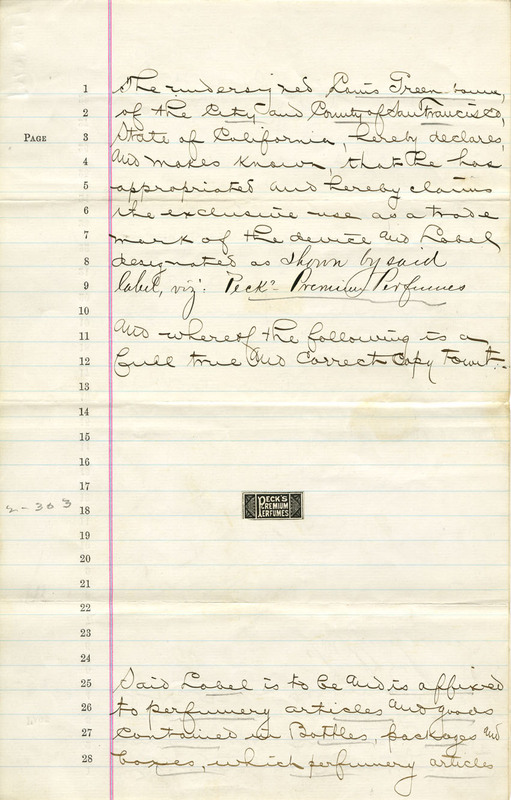 1 The undersigned Louis Greenbaum,
2 of the City and County of San Francisco,
PAGE 3 State of California, hereby declares,
4 and makes known, that he has
5 appropriated and hereby claims
6 the exclusive use as a trade
7 mark of the device and Label
8 designated as shown by said
9 label, viz: "Peck's Premium Perfumes
10
11 And whereof the following is a
12 full true and correct copy towit:-
13
14
15
16
17
PECK'S
PREMIUM
PERFUMES
2-363 18
19
20
21
22
23
24
25 Said Label is to be and is affixed
26 to perfumery articles and goods
27 contained in Bottles, packages and
28 boxes, which perfumery articles